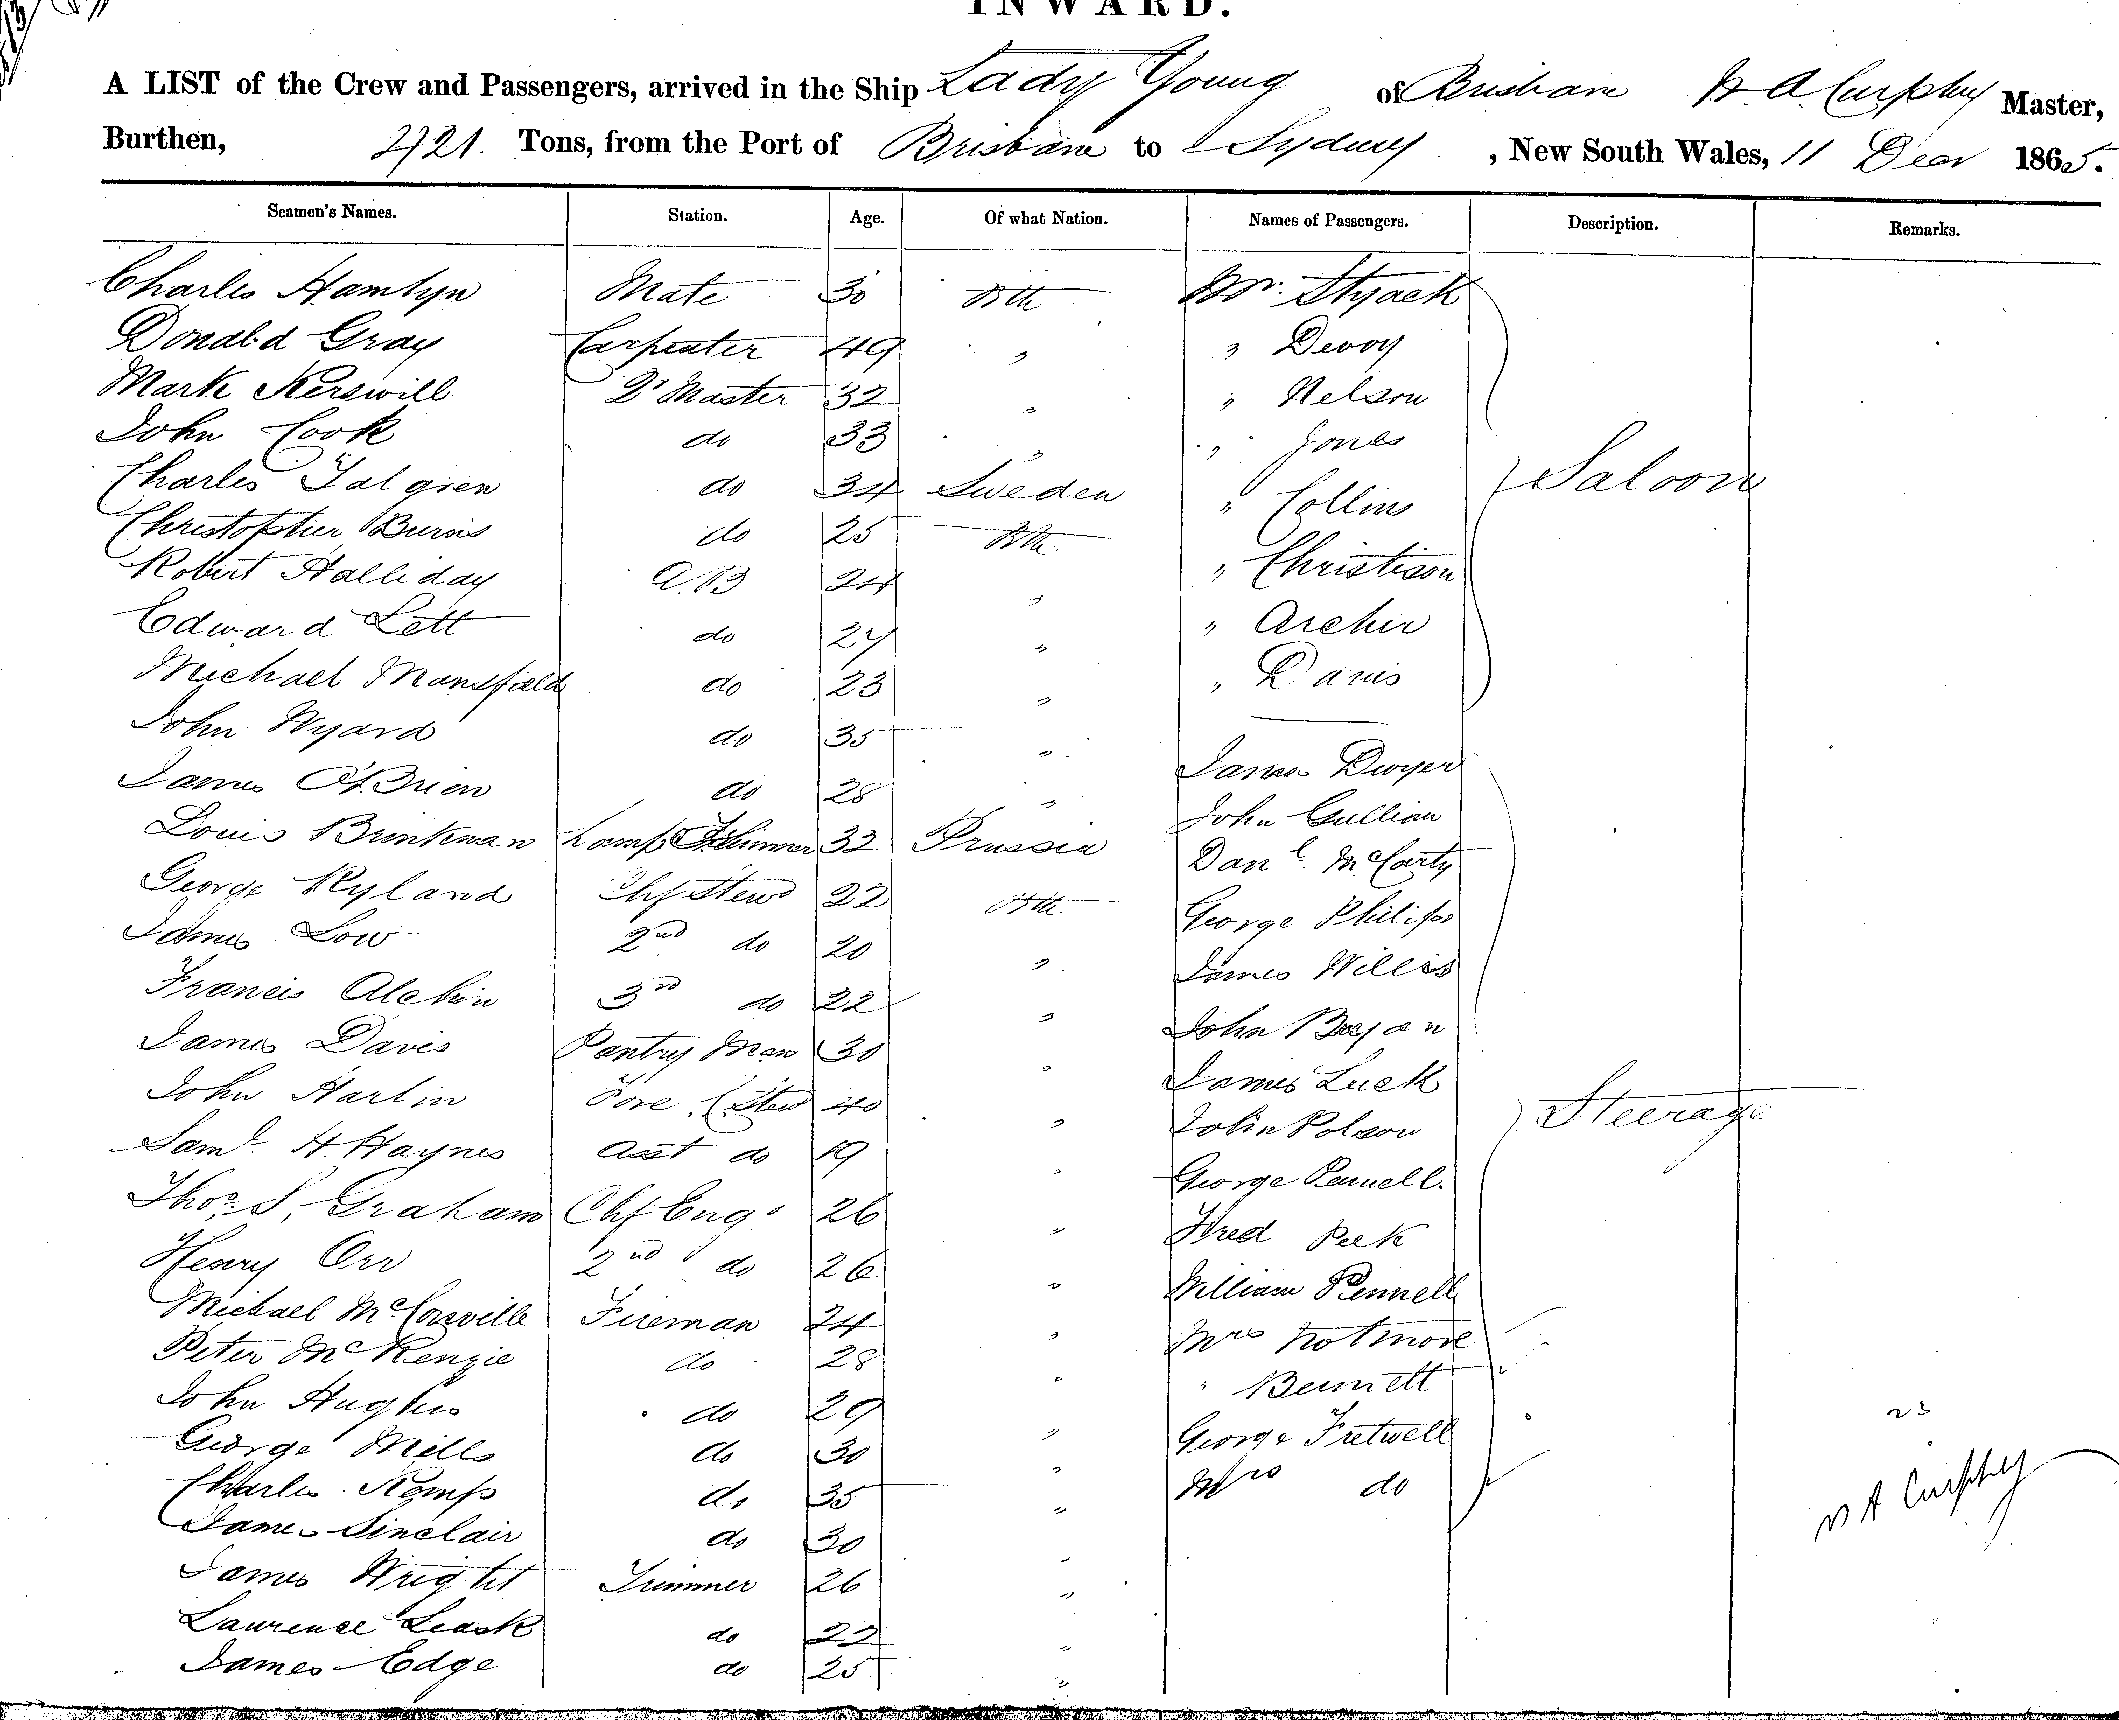 INWARD.
A LIST of the Crew and Passengers, arrived in the Ship Lady Young of Brisbane W A Curphey Master,
Burthen, 421 Tons, from the Port of Brisbane to Sydney , New South Wales, 11 Decr 1865.
Seamen's Names. Station. Age. Of what Nation. Names of Passengers. Description. Remarks.
Charles Hamlyn Mate 30 Bth Mr. Styack
Donald Gray Carpenter 49 " " Devoy
Mark Kerswill Qr Master 32 " " Nelson
John Cook do 33 " " Jones
Charles Talgren do 34 Sweden " Collins Saloon
Christopher Burns do 25 Bth " Christison
Robert Halliday A.B 24 " " Archer
Edward Lett do 27 " " Davis
Michael Mansfield do 23 "
John Wyard do 35 " James Dwyer
James O'Brien do 28 " John Gullian
Louis Brinkman Lamp Trimmer 32 Prussia Danl McCarty
George Ryland Chf Stewd 22 Bth George Philips
James Low 2nd do 20 " James Willis
Francis Alchin 3rd do 22 " John Bryan
James Davis Pantry Man 30 " James Luck
John Harlin Fore C Stew 40 " John Polson Steerage
Saml H Haynes Asst do 19 " George Pennell.
Thos S. Graham Chf Engr 26 " Fred Peek
Henry Orr 2nd do 26 " William Pennell
Michael McConville Fireman 24 " Mrs Notmore
Peter McKenzie do 28 " " Bennett
John Hughes do 29 " George Fretwell
George Mills do 30 " Mrs do
Charles Kemp do 35 "
James Sinclair do 30 "
James Wright Trimmer 26 "
Lawrence Leask do 22 "
James Edge do 25 "
23
W A Curphey